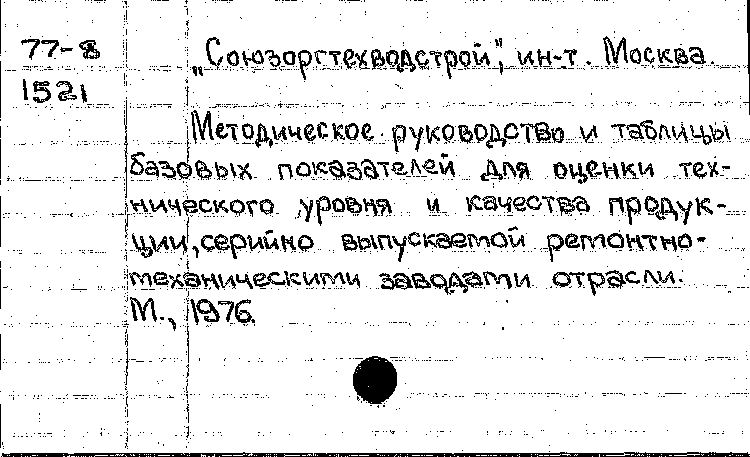 77-8 „Союзоргтехводстрой", ин-т. Москва.
1521
Методическое руководство и таблицы
базовых показателей для оценки тех-
нического уровня и качества продук-
ции, серийно выпускаемой ремонтно-
механическими заводами отрасли.
М., 1976.